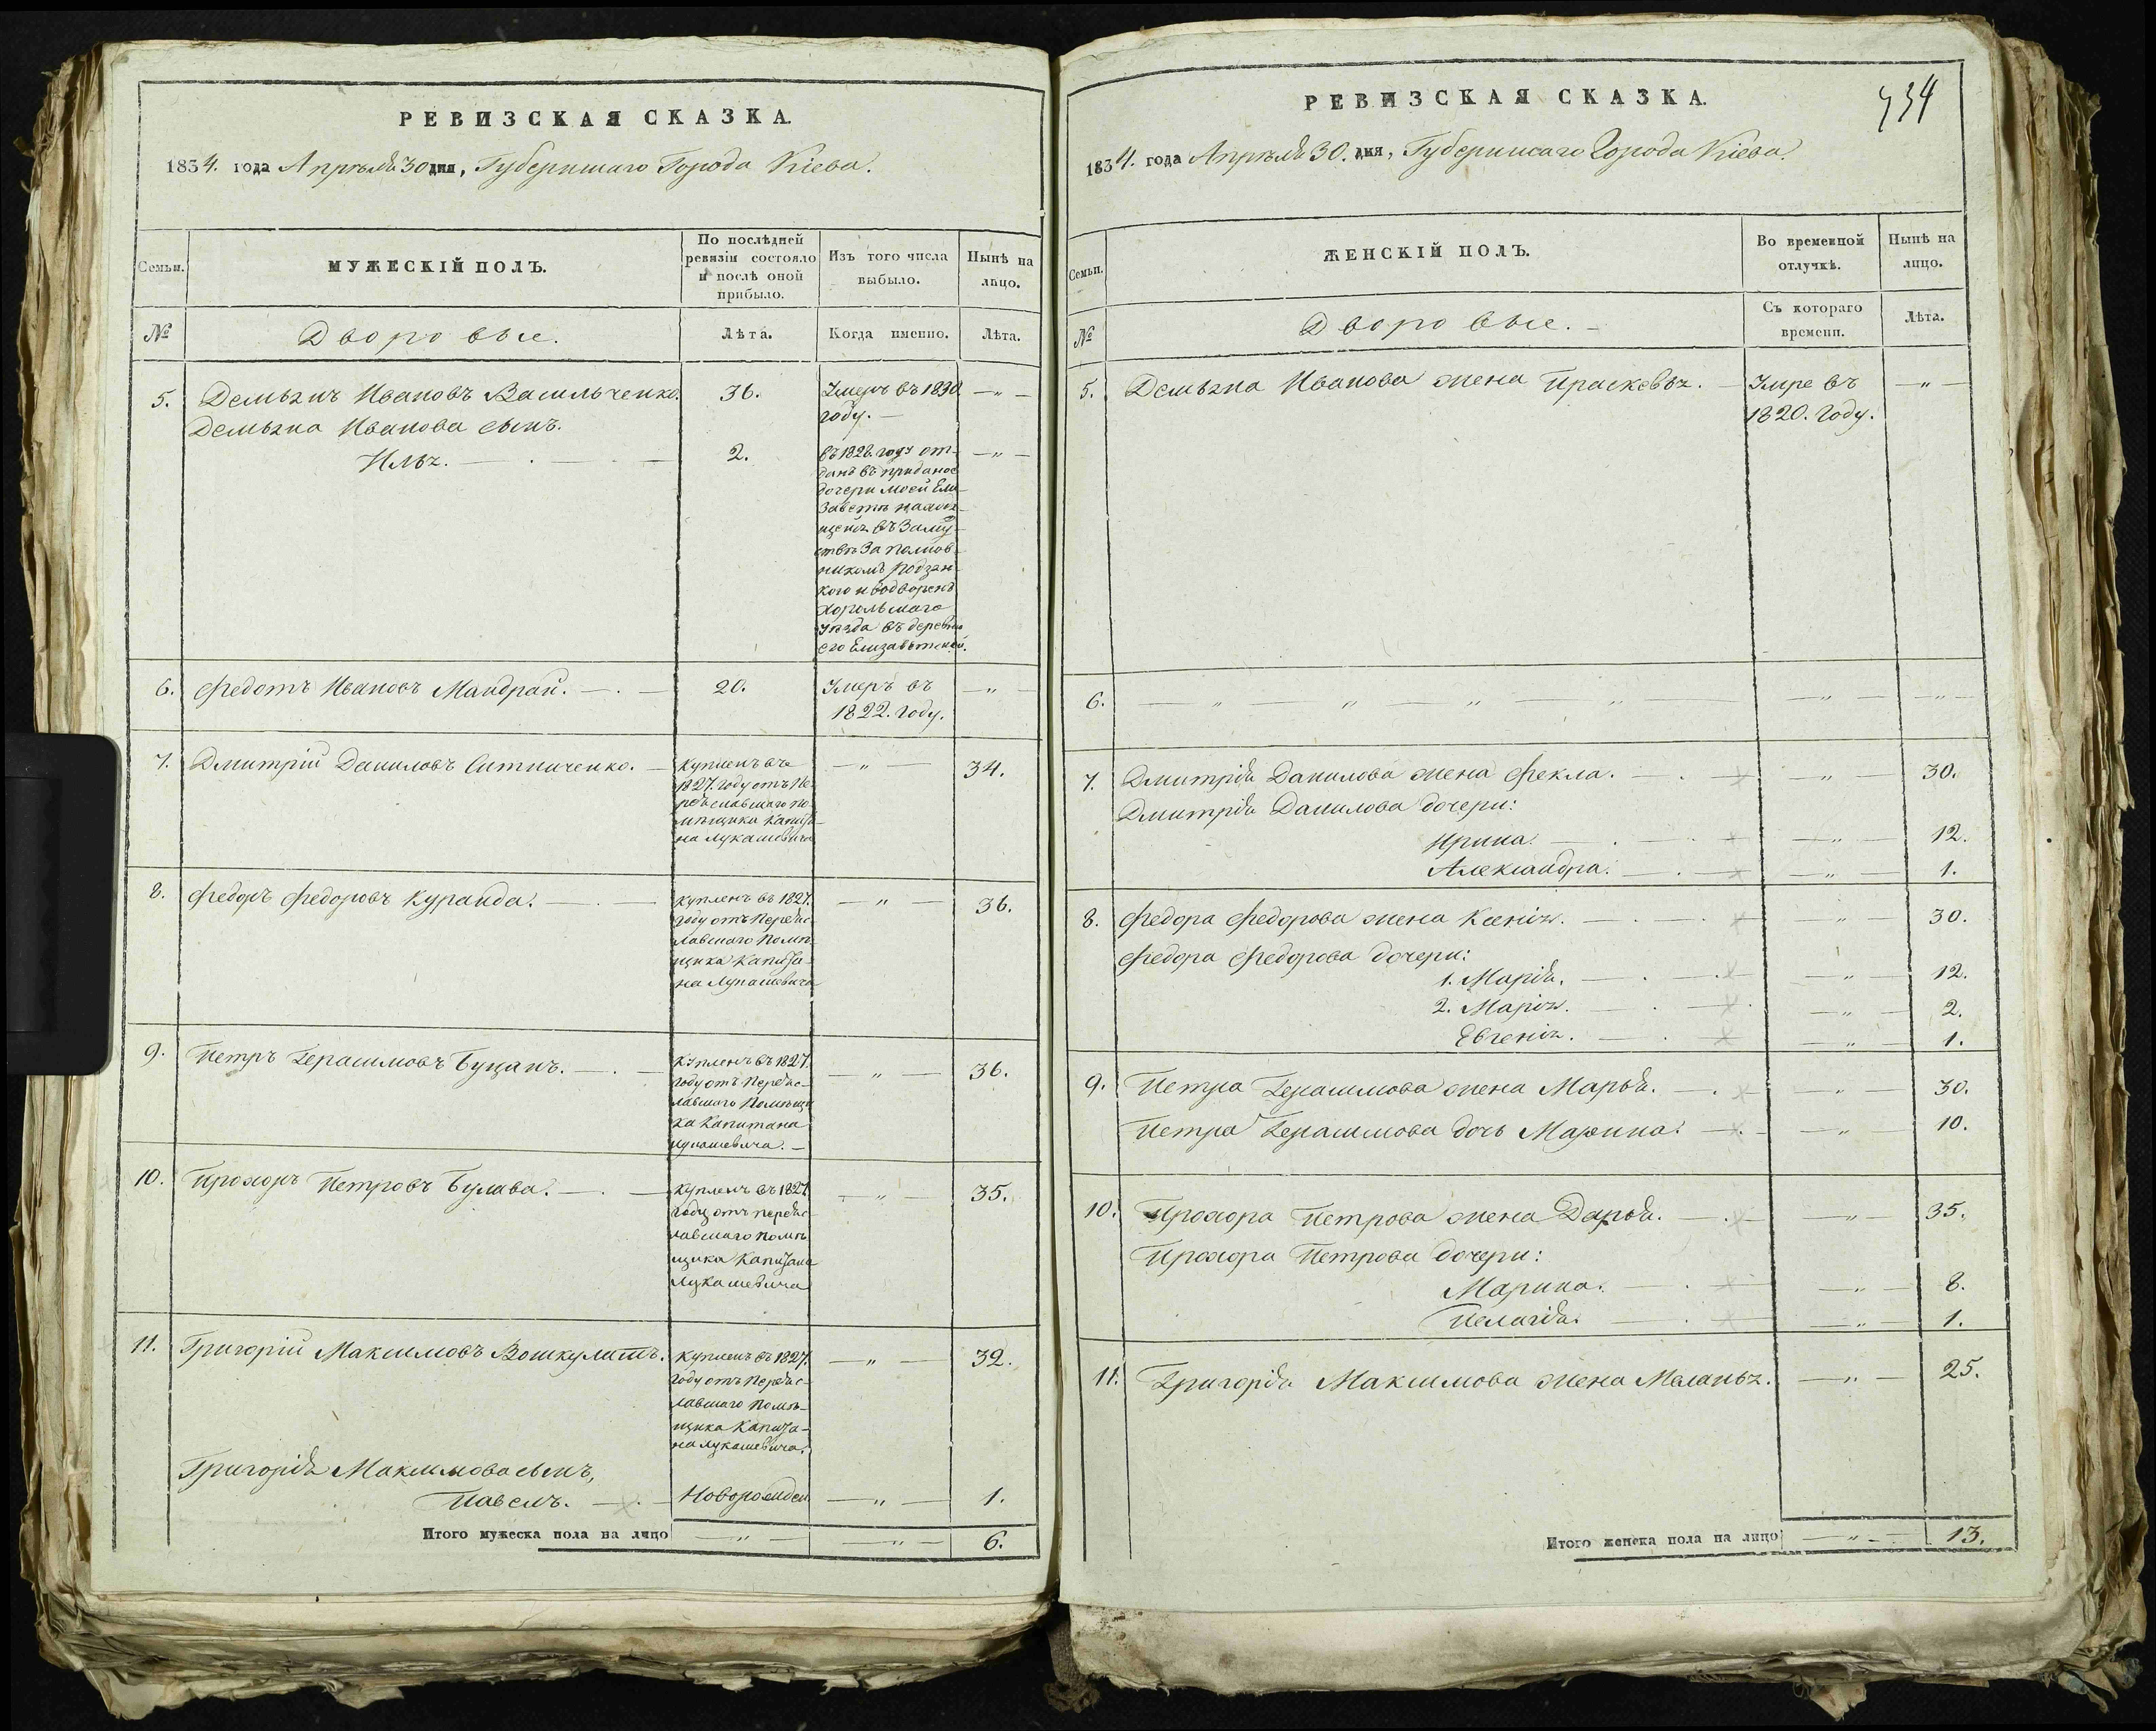 РЕВИЗСКАЯ СКАЗКА.
1834. года Апрѣля 30 дня, Губернскаго Города Кіева.
Семьи.
МУЖЕСКІЙ ПОЛЪ.
По послѣдней
ревизіи состояло
и послѣ оной
прибыло.
Изъ того числа
выбыло.
Нынѣ на
лицо.
№
Дворовые.
Лѣта.
Когда именно.
Лѣта.
5. Демьянъ Ивановъ Васильченко. 36. Умеръ въ 1830 — „ —
году. —
Демьяна Иванова сынъ.
Илья. — . — 2. въ 1828. году от- — „ —
данъ въ приданое
дочери моей Ели-
заветѣ находя-
щейся въ Заму-
ствѣ За полков-
никомъ Родзян-
кого и водворенъ
Хорольскаго
уѣзда въ деревню
его Елизаветской.
6. Федотъ Ивановъ Мандрай. — . — 20. Умеръ въ — „ —
1822. году.
7. Дмитрій Даниловъ Ситниченко. — Купленъ въ — „ — 34.
1827. году отъ Пе-
реяславскаго по-
мѣщика Капита-
на Лукашевича
8. Федоръ Федоровъ Куранда. — . — Купленъ въ 1827. — „ — 36.
году отъ Переяс-
лавскаго Помѣ-
щика Капита-
на Лукашевича
9. Петръ Герасимовъ Буцанъ. — . — Купленъ въ 1827. — „ — 36.
году отъ Переяс-
лавскаго Помѣщи
ка Капитана
Лукашевича. —
10. Прохоръ Петровъ Булава. — . — Купленъ въ 1827. — „ — 35.
году отъ Переяс-
лавскаго Помѣ
щика Капитана
Лукашевича
11. Григорій Максимовъ Вошкулатъ. Купленъ въ 1827. — „ — 32.
году отъ Переяс-
лавскаго Помѣ-
щика Капита-
на Лукашевича.
Григорія Максимова сынъ,
Павелъ. — . — Новорожден — „ — 1.
Итого мужеска пола на лицо — „ — — „ — 6.
434
РЕВИЗСКАЯ СКАЗКА.
1834. года Апрѣля 30. дня, Губернскаго Города Кіева.
Семьи.
ЖЕНСКІЙ ПОЛЪ.
Во временной
отлучкѣ.
Нынѣ на
лицо.
№
Дворовые. —
Съ котораго
времени.
Лѣта.
5. Демьяна Иванова жена Прасковья. — Умре въ — „ —
1820. Году.
6. — „ — „ — „ — „ — — „ — — „ —
7. Дмитрія Данилова жена Фекла. — . — — „ — 30.
Дмитрія Данилова дочери:
Ирина. — . — — „ — 12.
Александра. — . — — „ — 1.
8. Федора Федорова жена Ксенія. — . — „ — 30.
Федора Федорова дочери:
1. Марія. — . — — „ — 12.
2. Марія. — . — — „ — 2.
Евгенія. — . — — „ — 1.
9. Петра Герасимова жена Марья. — . — — „ — 30.
Петра Герасимова дочь Марина. — . — — „ 10.
10. Прохора Петрова жена Дарья. — . — — „ — 35.
Прохора Петрова дочери:
Марина. — . — — „ — 8.
Пелагія. — . — — „ — 1.
11. Григорія Максимова жена Меланья. — „ — 25.
Итого женска пола на лицо — „ — 13.